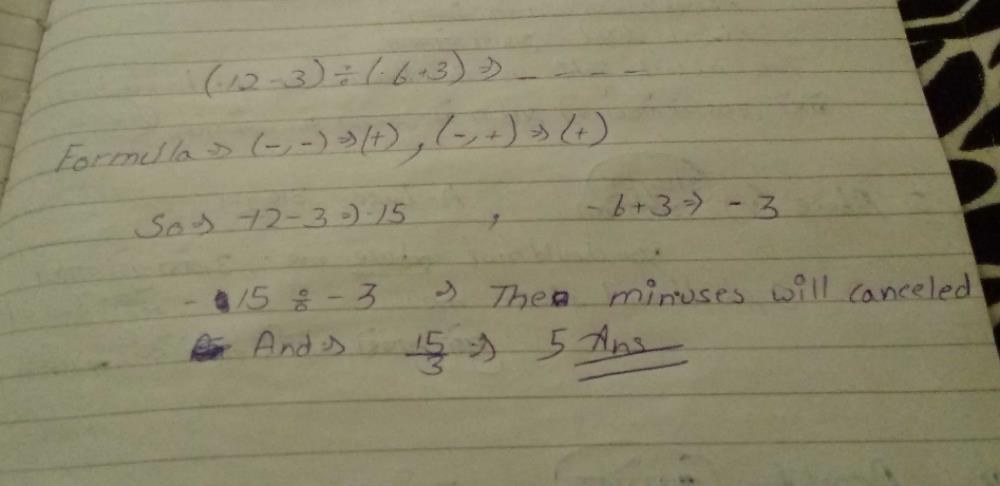 (-12-3)÷(-6+3)⇒ _ _ _ _
Formula⇒ (-,-)⇒(+), (-,+)⇒(+)
So⇒ -12-3⇒-15 , -6+3⇒ -3
-15 ÷ -3 ⇒ The minuses will canceled
And⇒ 15/3 ⇒ 5 Ans